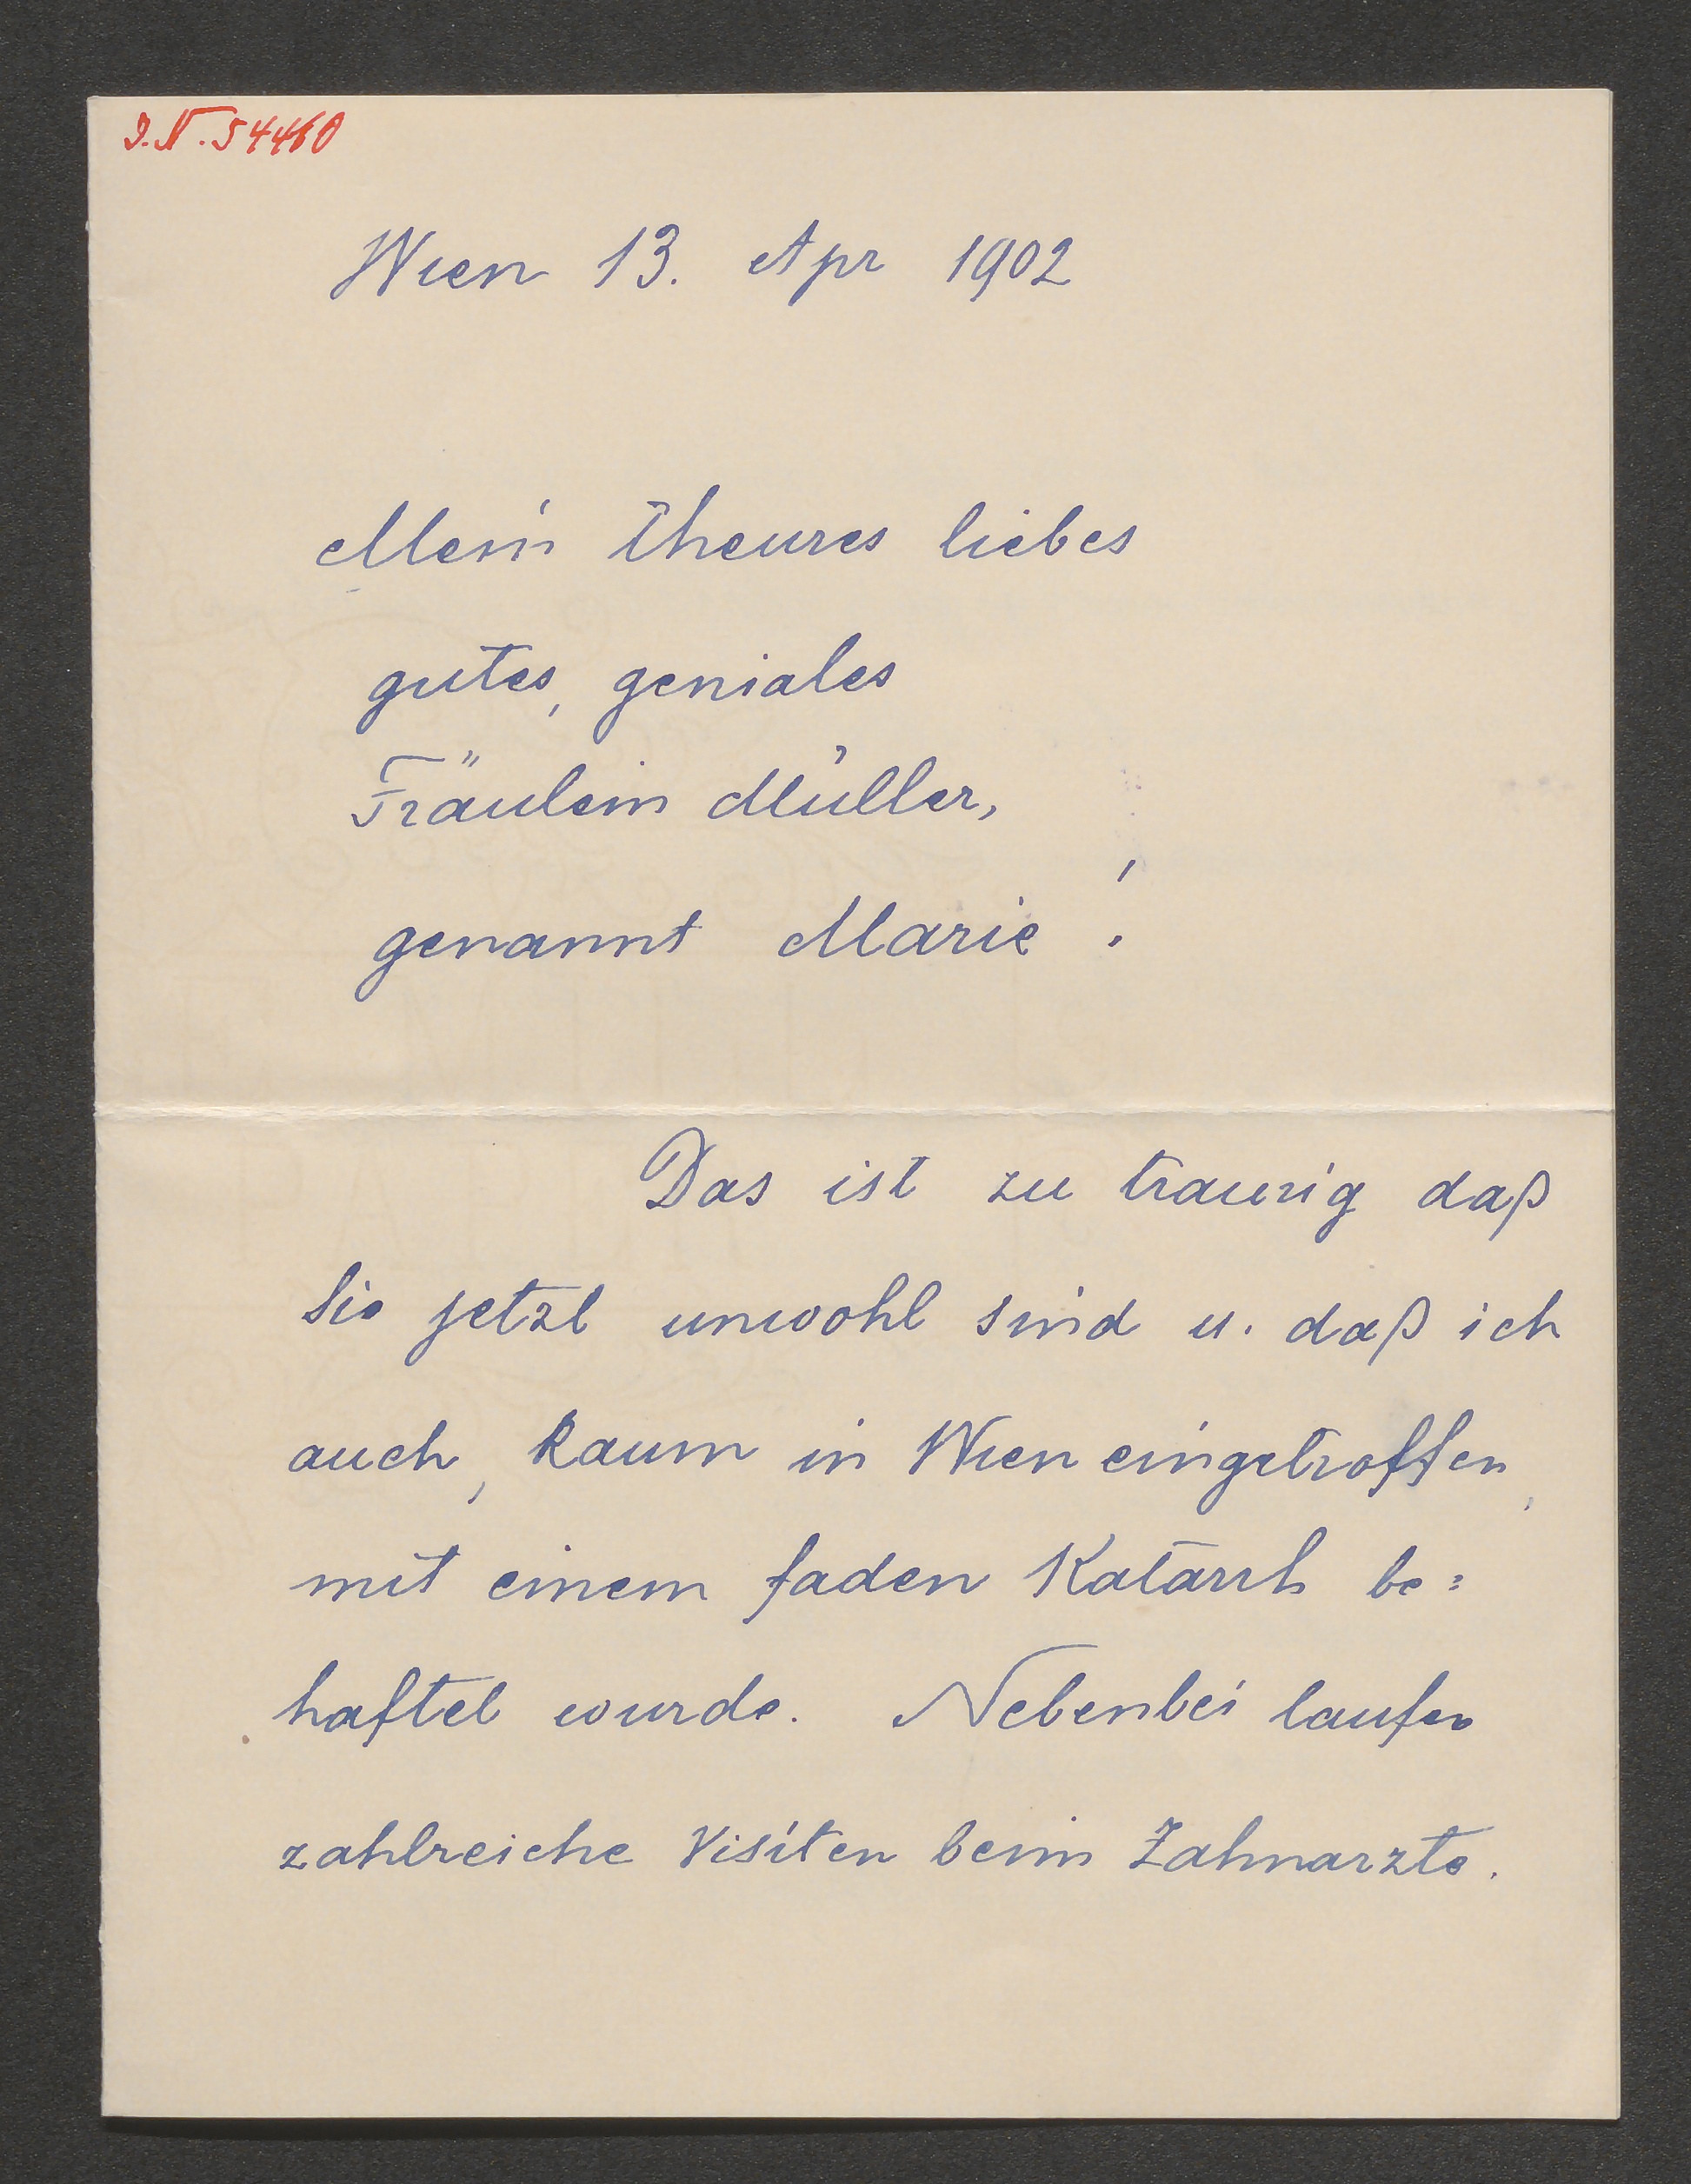 I.N. 54460
Wien 13. Apr 1902
Mein theures liebes
gutes, geniales
Fräulein Müller,
genannt Marie!
Das ist zu traurig daß
Sie jetzt unwohl sind u. daß ich
auch, kaum in Wien eingetroffen,
mit einem faden Katarrh be=
haftet wurde. Nebenbei laufen
zahlreiche Visiten beim Zahnarzte.